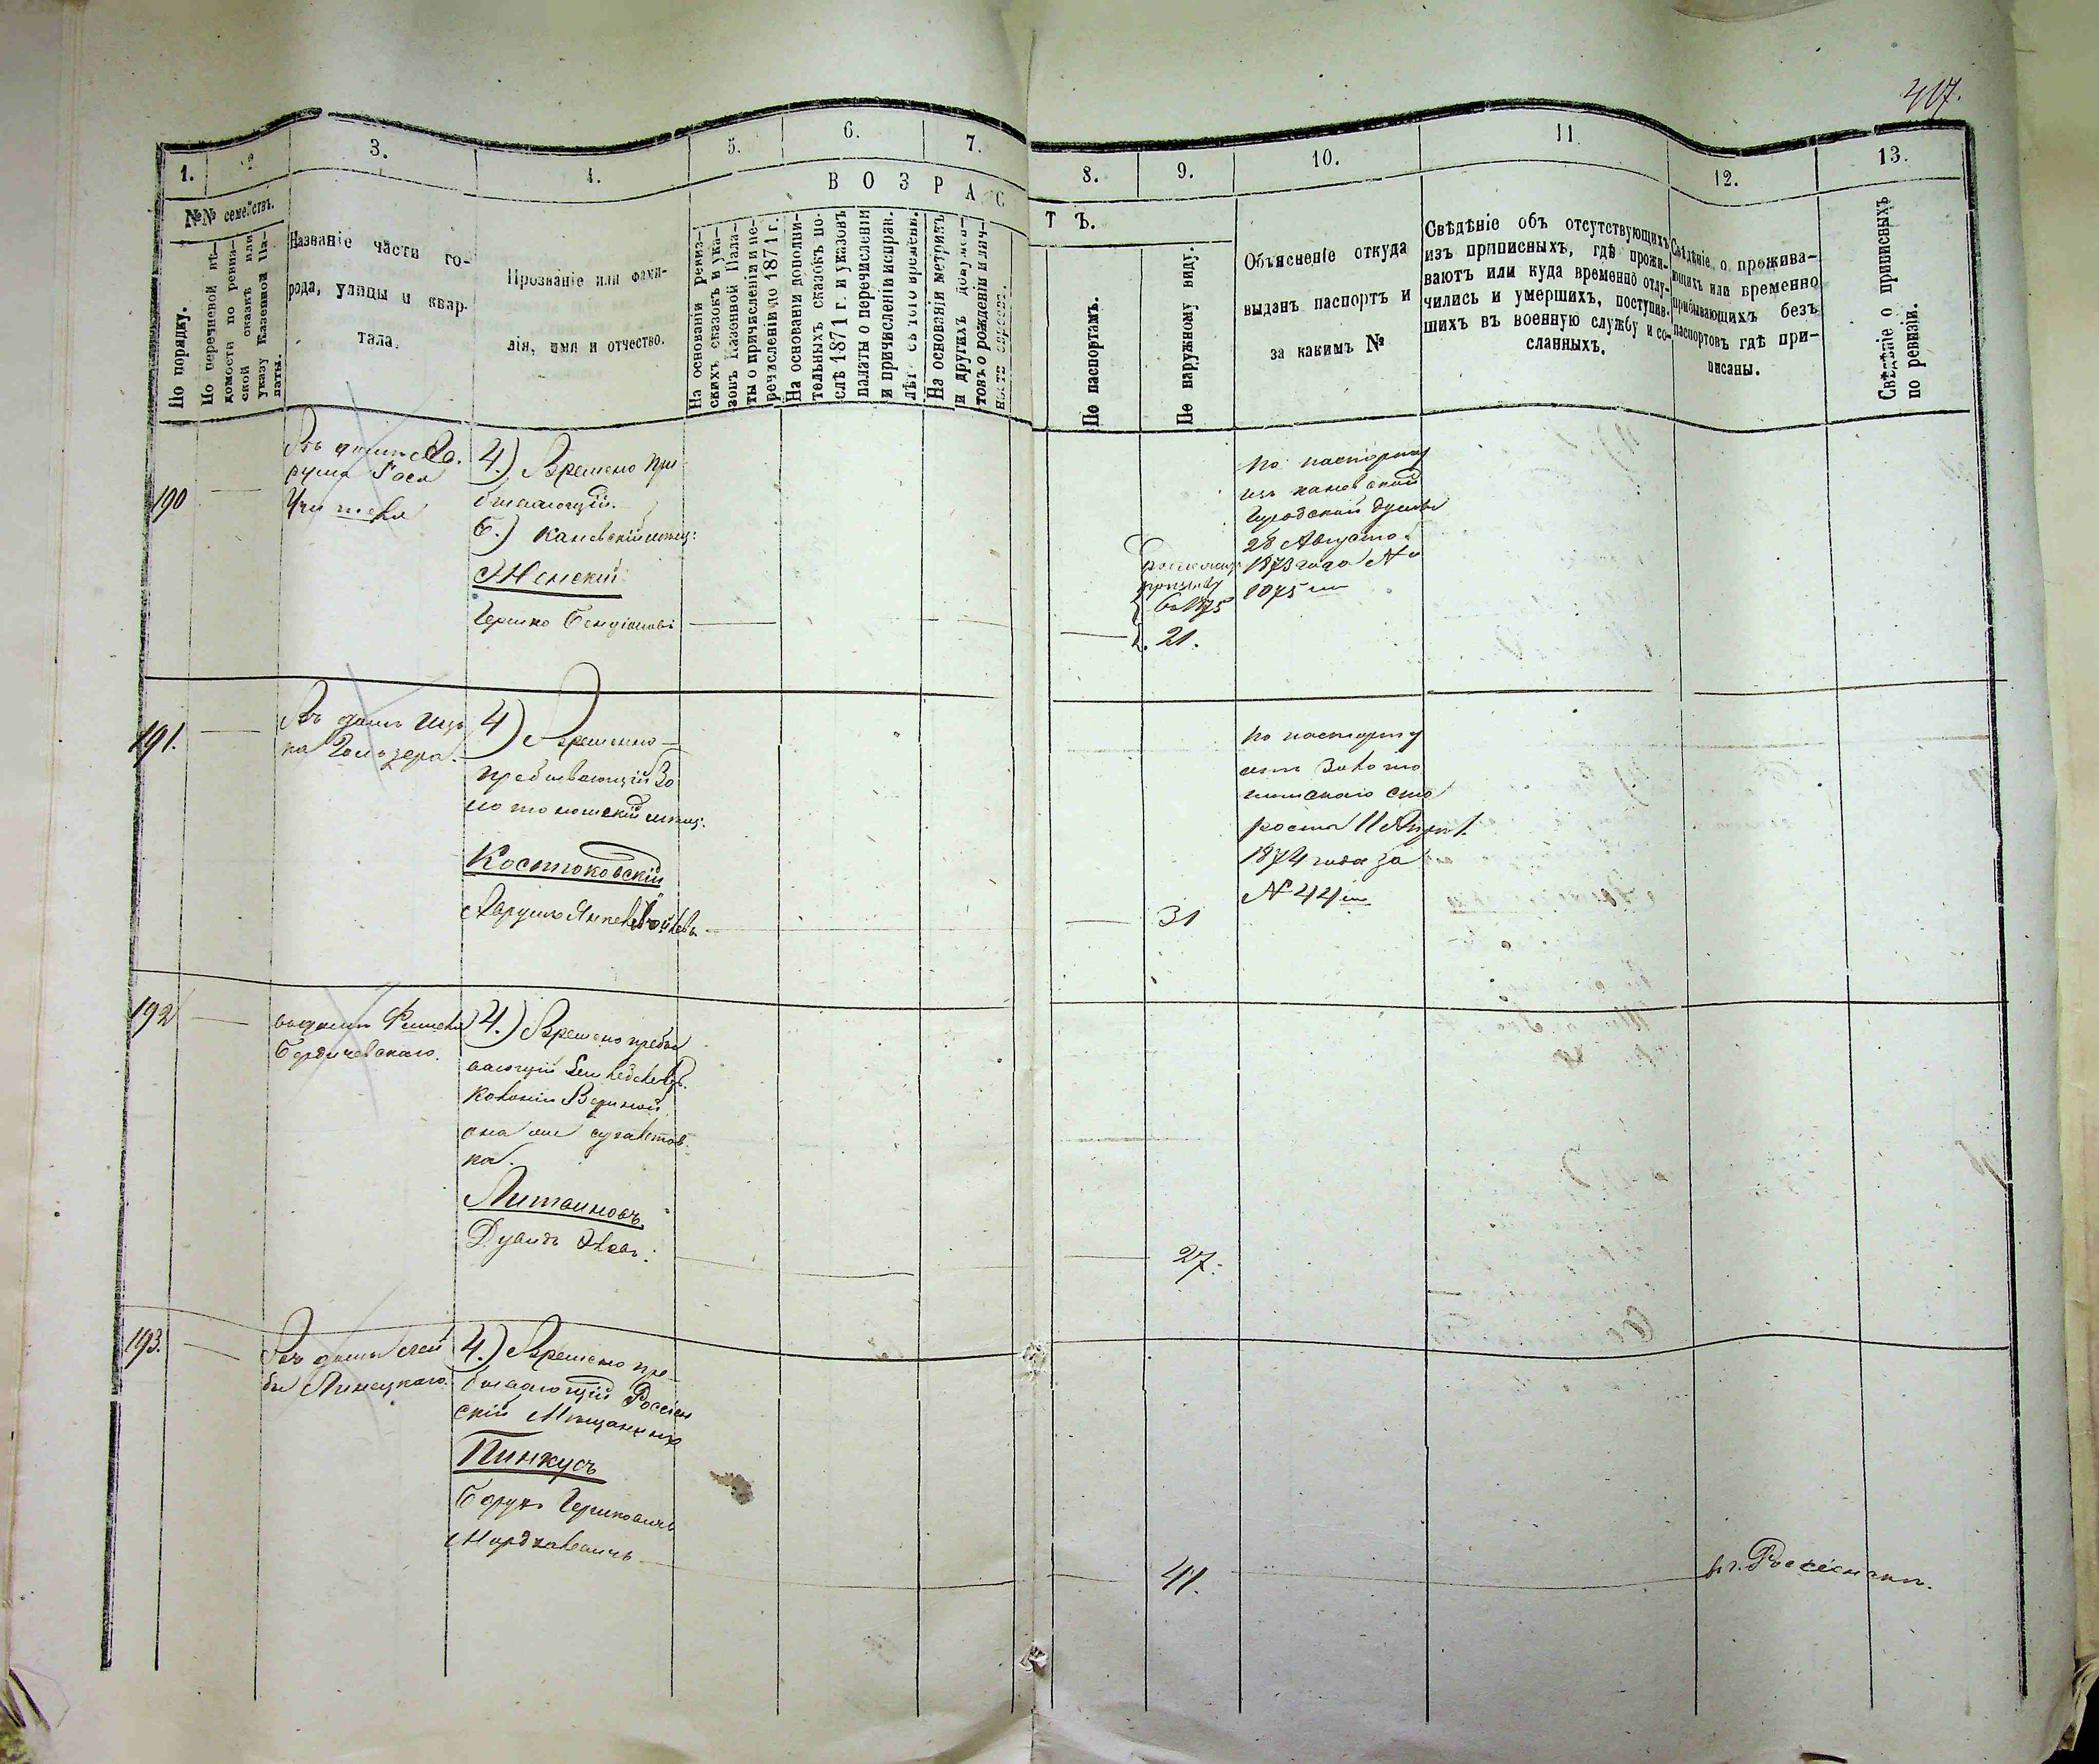 417.
1.
2
3.
4.
5.
6.
7.
8.
9.
10.
11
12.
13.
В О З Р А С
Т Ъ.
№№ семействъ.
По порядку.
По перечневой вѣ-
домости по ревиз-
ской сказкѣ или
указу Казенной Па-
латы.
Названіе части го-
рода, улицы и квар-
тала.
Прозваніе или фами-
лія, имя и отчество.
На основаніи ревиз-
скихъ сказокъ и ука-
зовъ Казенной Пала-
ты о причисленіи и пе-
речисленіи до 1871 г.
На основаніи дополни-
тельныхъ сказокъ по-
слѣ 1871 г. и указовъ
палаты о перечисленіи
и причисленіи исправ.
лѣт. съ того времени.
На основаніи метрикъ
и другихъ докумен-
товъ о рожденіи и лич-
ности
По паспортамъ.
По наружному виду.
Объясненіе откуда
выданъ паспортъ и
за какимъ №
Свѣдѣніе объ отсутствующихъ
изъ приписныхъ, гдѣ прожи-
ваютъ или куда временно отлу-
чились и умершихъ, поступив-
шихъ въ военную службу и со-
сланныхъ.
Свѣдѣніе о прожива-
ющихъ или временно
прибывающихъ безъ
паспортовъ гдѣ при-
писаны.
Свѣдѣніе о приписныхъ
по ревизіи.
190
4.) Времено пре
бывающій.
Б.) Каневскій мѣщ:
Женскій
Гершко Бенціоновъ
1875
21.
По паспорту
изъ каневской
Городской думы
28 Августа
1873 года №
1075
191.
Въ домѣ Иц
ка
4) Временно
пребывающій Зо
лотоношскій мѣщ.
Костюковскій
Аврумъ Янкель
31
по паспорту
отъ Золото
ношскаго ста
росты 11 Апрѣл.
1874 года за
№ 44
192
въ домѣ Фишеля
Бердичевскаго.
4.) Времено пребы
вающій Земледелецъ
Колоніи
ка.
Литвиновъ
Дувидъ
27.
193.
Въ домѣ Лей
бы Линецкаго.
4.) Времено пре
бывающій Россіен
скій Мѣщанинъ
Пинкусъ
Борухъ Гершковичъ
Мордковичъ
41.
въ г. Россіенахъ.